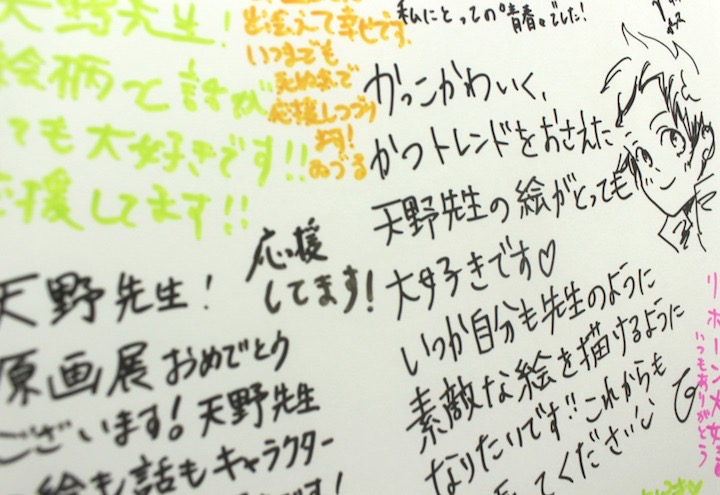 天野先生!
絵柄と話が
ても大好きです!!
応援してます!!
出会えて幸せです。
いつまでも
死ぬまで
応援しつづり
ゆづる
私にとっての"青春"でした!
がっこかわいく、
かつトレンドをおさえた
天野先生の絵がとっても
大好きです♡
いつか自分も先生のように
素敵な絵を描けるように
なりたいです!!これからも
てください
応援
してます!
天野先生!
原画展おめでとう
ございます!天野先生
絵も話もキャラクター
です!
リボーン大好き
いつもありがとう